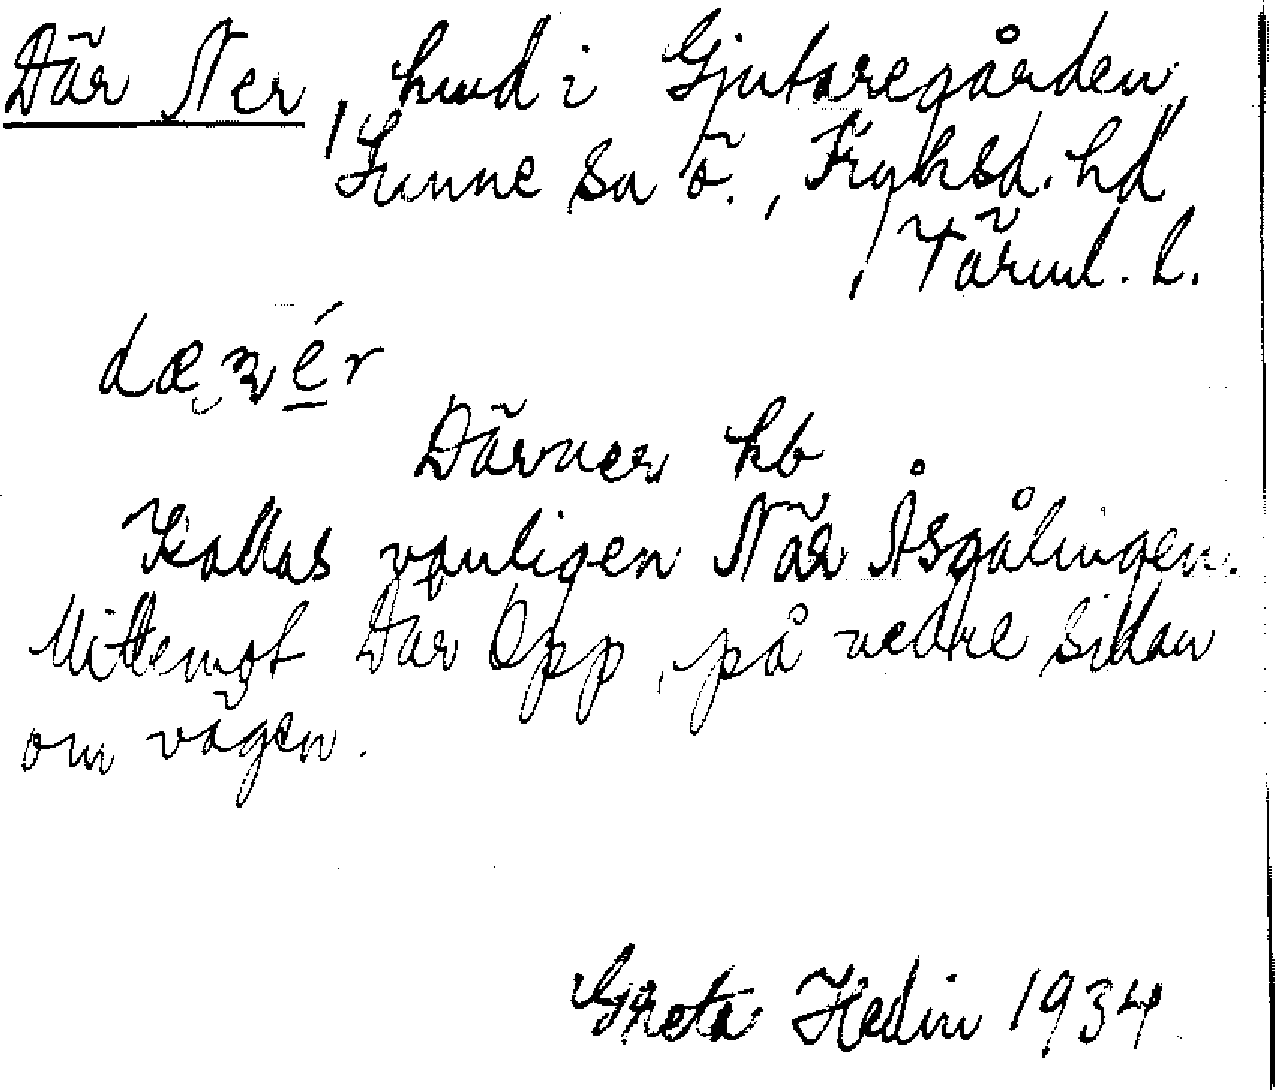 Där Ner, hmd i Gjutaregården,
Sunne sn ö., Fryksd. hd
Värml. l.
Därner hb
Kallas vanligen När Åsgålingen.
Mittemot Där Opp, på nedre sidan
om vägen.
Greta Hedin 1934